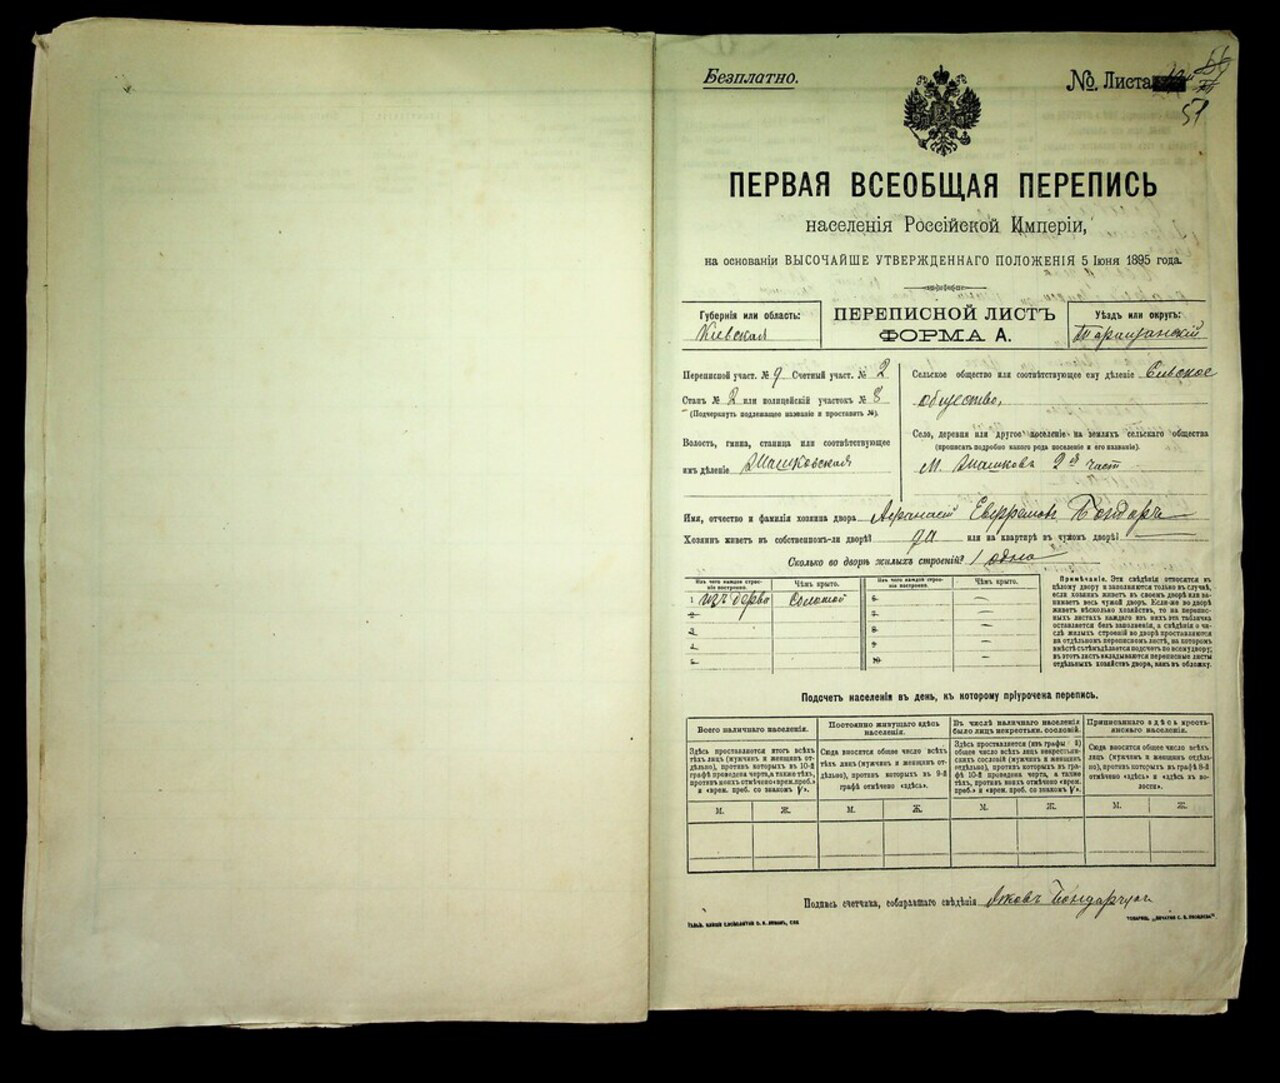 Безплатно.
№ Листа
51
ПЕРВАЯ ВСЕОБЩАЯ ПЕРЕПИСЬ
населенія Россійской Имперіи,
на основаніи ВЫСОЧАЙШЕ УТВЕРЖДЕННАГО ПОЛОЖЕНІЯ 5 Іюня 1895 года.
Губернія или область:
Кіевская
ПЕРЕПИСНОЙ ЛИСТЪ
ФОРМА А.
Уѣздъ или округъ:
Таращанскій
Переписной участ. № 9 Счетный участ. № 2
Станъ № 2 или полицейскій участокъ № 8
(Подчеркнуть подлежащее названіе и проставить №).
Волость, гмина, станица или соотвѣтствующее
имъ дѣленіе
Сельское общество или соотвѣтствующее ему дѣленіе
общество,
Село, деревня или другое поселеніе на земляхъ сельскаго общества
(прописать подробно какого рода поселеніе и его названіе).
М. 2ª част
Имя, отчество и фамилія хозяина двора Афанасій Бондарь
Хозяинъ живетъ въ собственномъ-ли дворѣ? да или на квартирѣ въ чужомъ дворѣ? —
Сколько во дворѣ жилыхъ строеній? 1 одно
Изъ чего каждое строеніе построено.
Чѣмъ крыто.
Изъ чего каждое строеніе построено.
Чѣмъ крыто.
1 изъ дерва Соломой 6 —
2 7 —
3 8 —
4 9 —
5 10 —
Примѣчаніе. Эти свѣдѣнія относятся къ
цѣлому двору и заполняются только въ случаѣ,
если хозяинъ живетъ въ своемъ дворѣ или за-
нимаетъ весь чужой дворъ. Если-же во дворѣ
живетъ нѣсколько хозяйствъ, то на перепис-
ныхъ листахъ каждаго изъ нихъ эта табличка
оставляется безъ заполненія, а свѣдѣнія о чи-
слѣ жилыхъ строеній во дворѣ проставляются
на отдѣльномъ переписномъ листѣ, на которомъ
вмѣстѣ съ тѣмъ дѣлается подсчетъ по всему двору;
въ этотъ листъ вкладываются переписные листы
отдѣльныхъ хозяйствъ двора, какъ въ обложку.
Подсчетъ населенія въ день, къ которому пріурочена перепись.
Всего наличнаго населенія.
Постоянно живущаго здѣсь
населенія.
Въ числѣ наличнаго населенія
было лицъ некрестьян. сословій.
Приписаннаго здѣсь кресть-
янскаго населенія.
Здѣсь проставляется итогъ всѣхъ
тѣхъ лицъ (мужчинъ и женщинъ от-
дѣльно), противъ которыхъ въ 10-й
графѣ проведена черта, а также тѣхъ,
противъ коихъ отмѣчено «врем. преб.»
и «врем. преб. со знакомъ V».
Сюда вносится общее число всѣхъ
тѣхъ лицъ (мужчинъ и женщинъ от-
дѣльно), противъ которыхъ въ 9-й
графѣ отмѣчено «здѣсь».
Здѣсь проставляется (изъ графы 3)
общее число всѣхъ лицъ некрестьян-
скихъ сословій (мужчинъ и женщинъ
отдѣльно), противъ которыхъ въ гра-
фѣ 10-й проведена черта, а также
тѣхъ, противъ коихъ отмѣчено «врем.
преб.» и «врем. преб. со знакомъ V».
Сюда вносится общее число всѣхъ
лицъ (мужчинъ и женщинъ отдѣль-
но), противъ которыхъ въ графѣ 8-й
отмѣчено «здѣсь» и «здѣсь въ во-
лости».
М. Ж. М. Ж. М. Ж. М. Ж.
Подпись счетчика, собиравшаго свѣдѣнія Яковъ Бондарчук